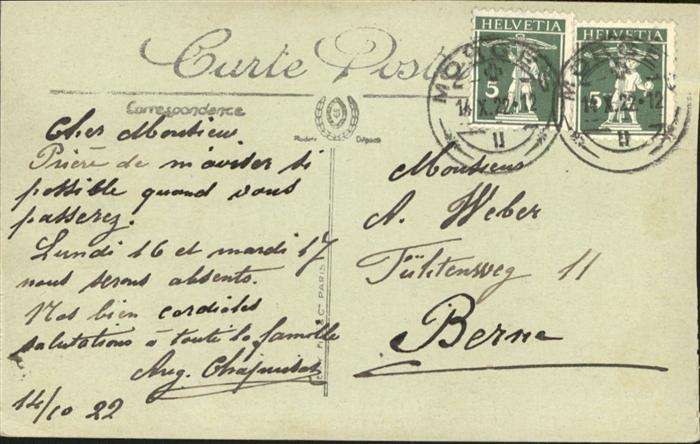 Carte Postale
HELVETIA
HELVETIA
5
5
MORGES
14.X.22.12
II
MORGES
14.X.22.12
II
Correspondence
Modèle Déposé
Cher Monsieur
Prière de m'aviser si
possible quand vous
passerez.
Lundi 16 et mardi 17
nous serons absents.
Nos bien cordiales
salutations à toute la famille
Aug.
14/10 22
Monsieur
A. Weber
11
Berne
PARIS